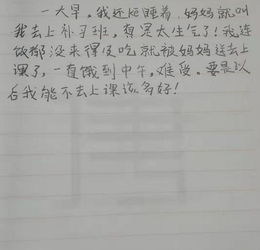 一大早。我还在睡着，妈妈就叫
我去上补习班，真是太生气了！我连
饭都没来得及吃就被妈妈送去上
课了，一直饿到中午，难受。要是以
后我能不去上课该多好！